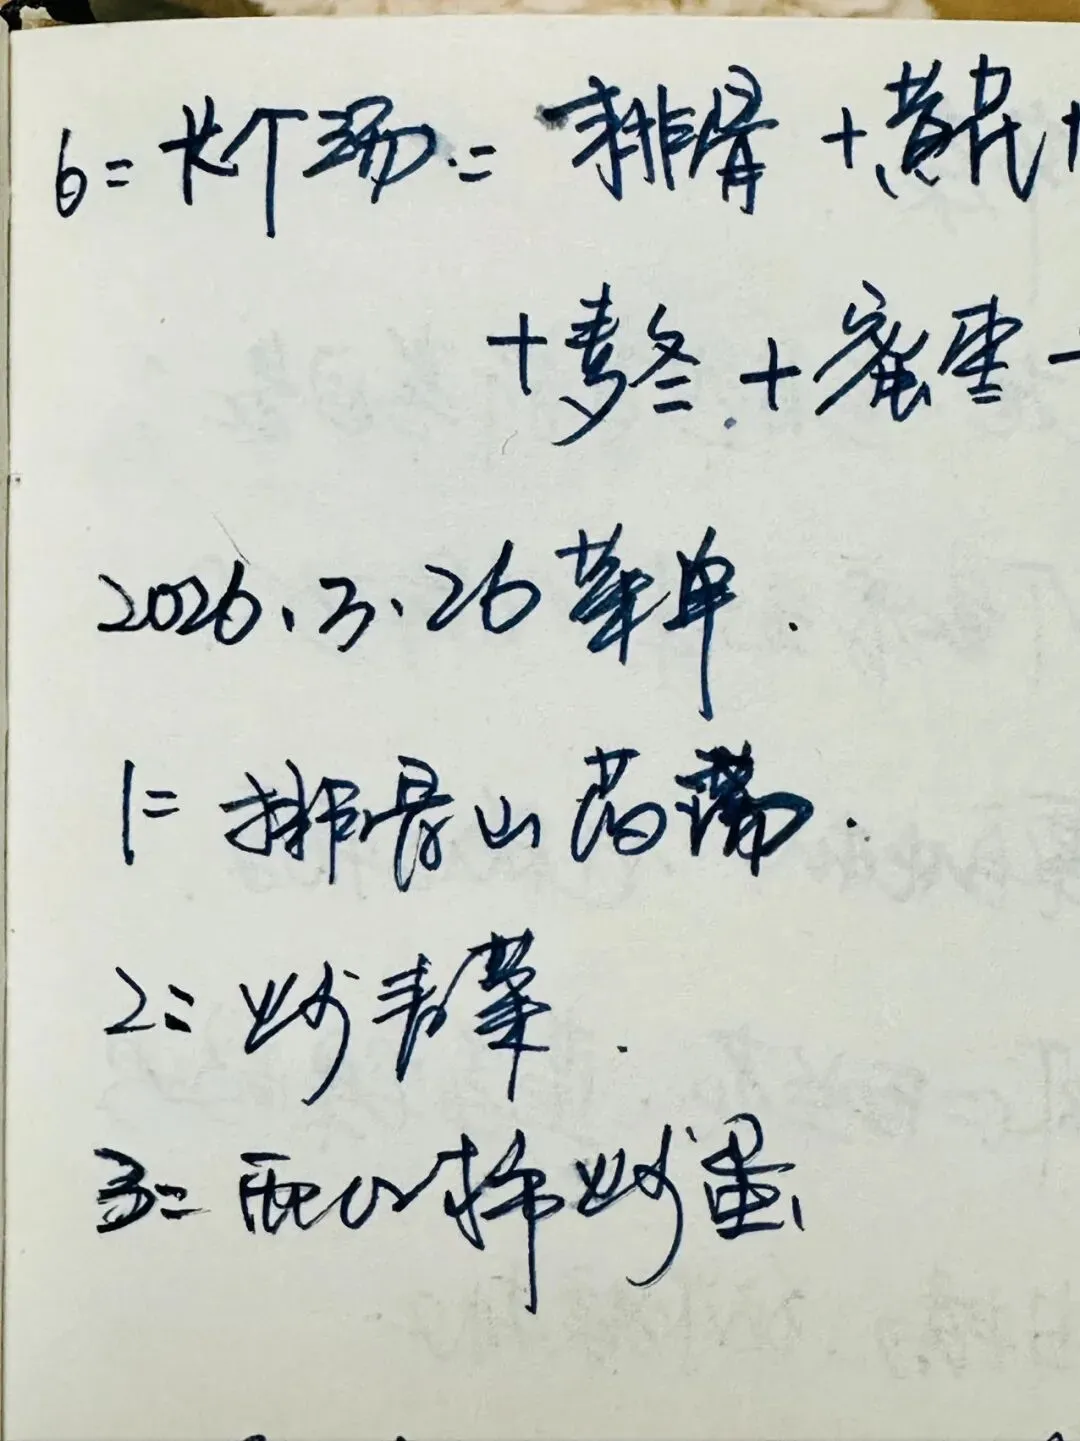 6= 米个汤.= 排骨+黄芪+
+麦冬.+蜜枣
2026、3、26菜单.
1= 排骨山药汤.
2= 炒青菜.
3= 西红柿炒蛋、